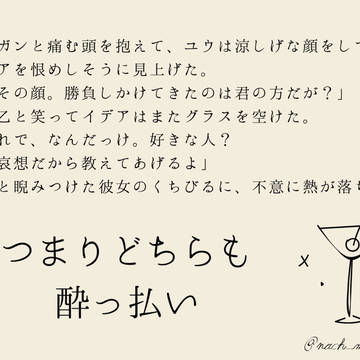 ガンと痛む頭を抱えて、ユウは涼しげな顔をして
アを恨めしそうに見上げた。
その顔。勝負しかけてきたのは君の方だが？」
乙と笑ってイデアはまたグラスを空けた。
れで、なんだっけ。好きな人？
哀想だから教えてあげるよ」
と睨みつけた彼女のくちびるに、不意に熱が落ち
つまりどちらも
酔っ払い